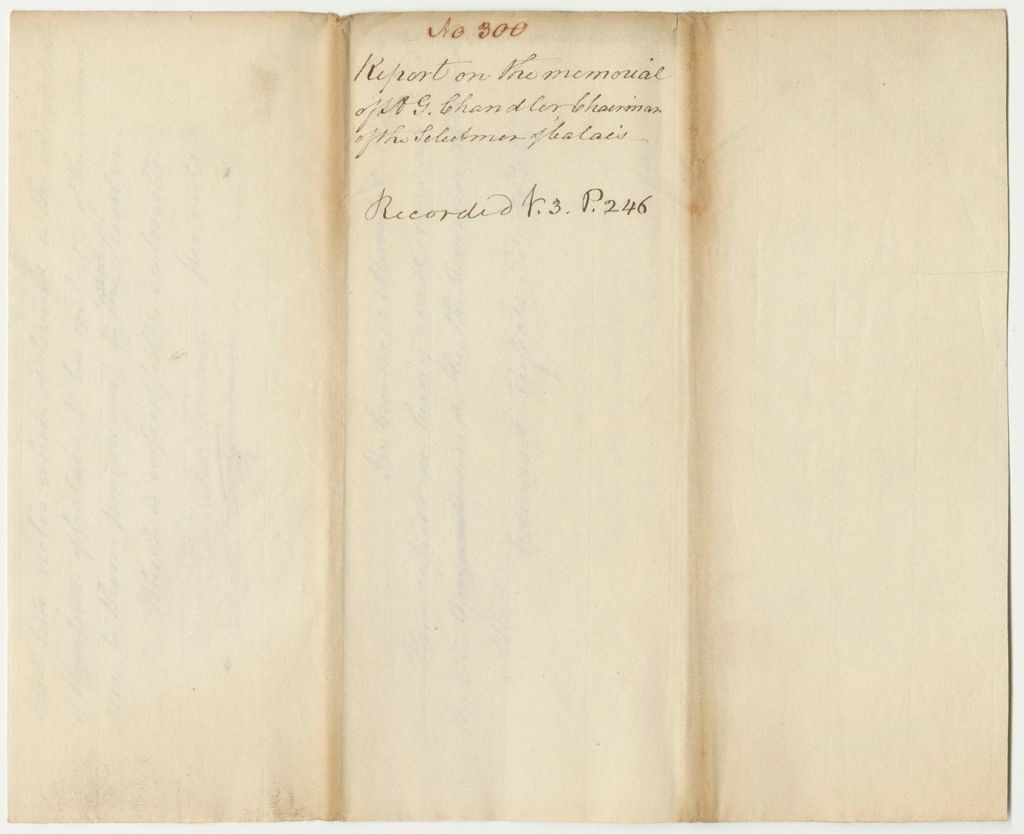 No 300
Report on the memorial
of A G. Chandler Chairman
of the Selectmen of Calais
Recorded V. 3. P. 246